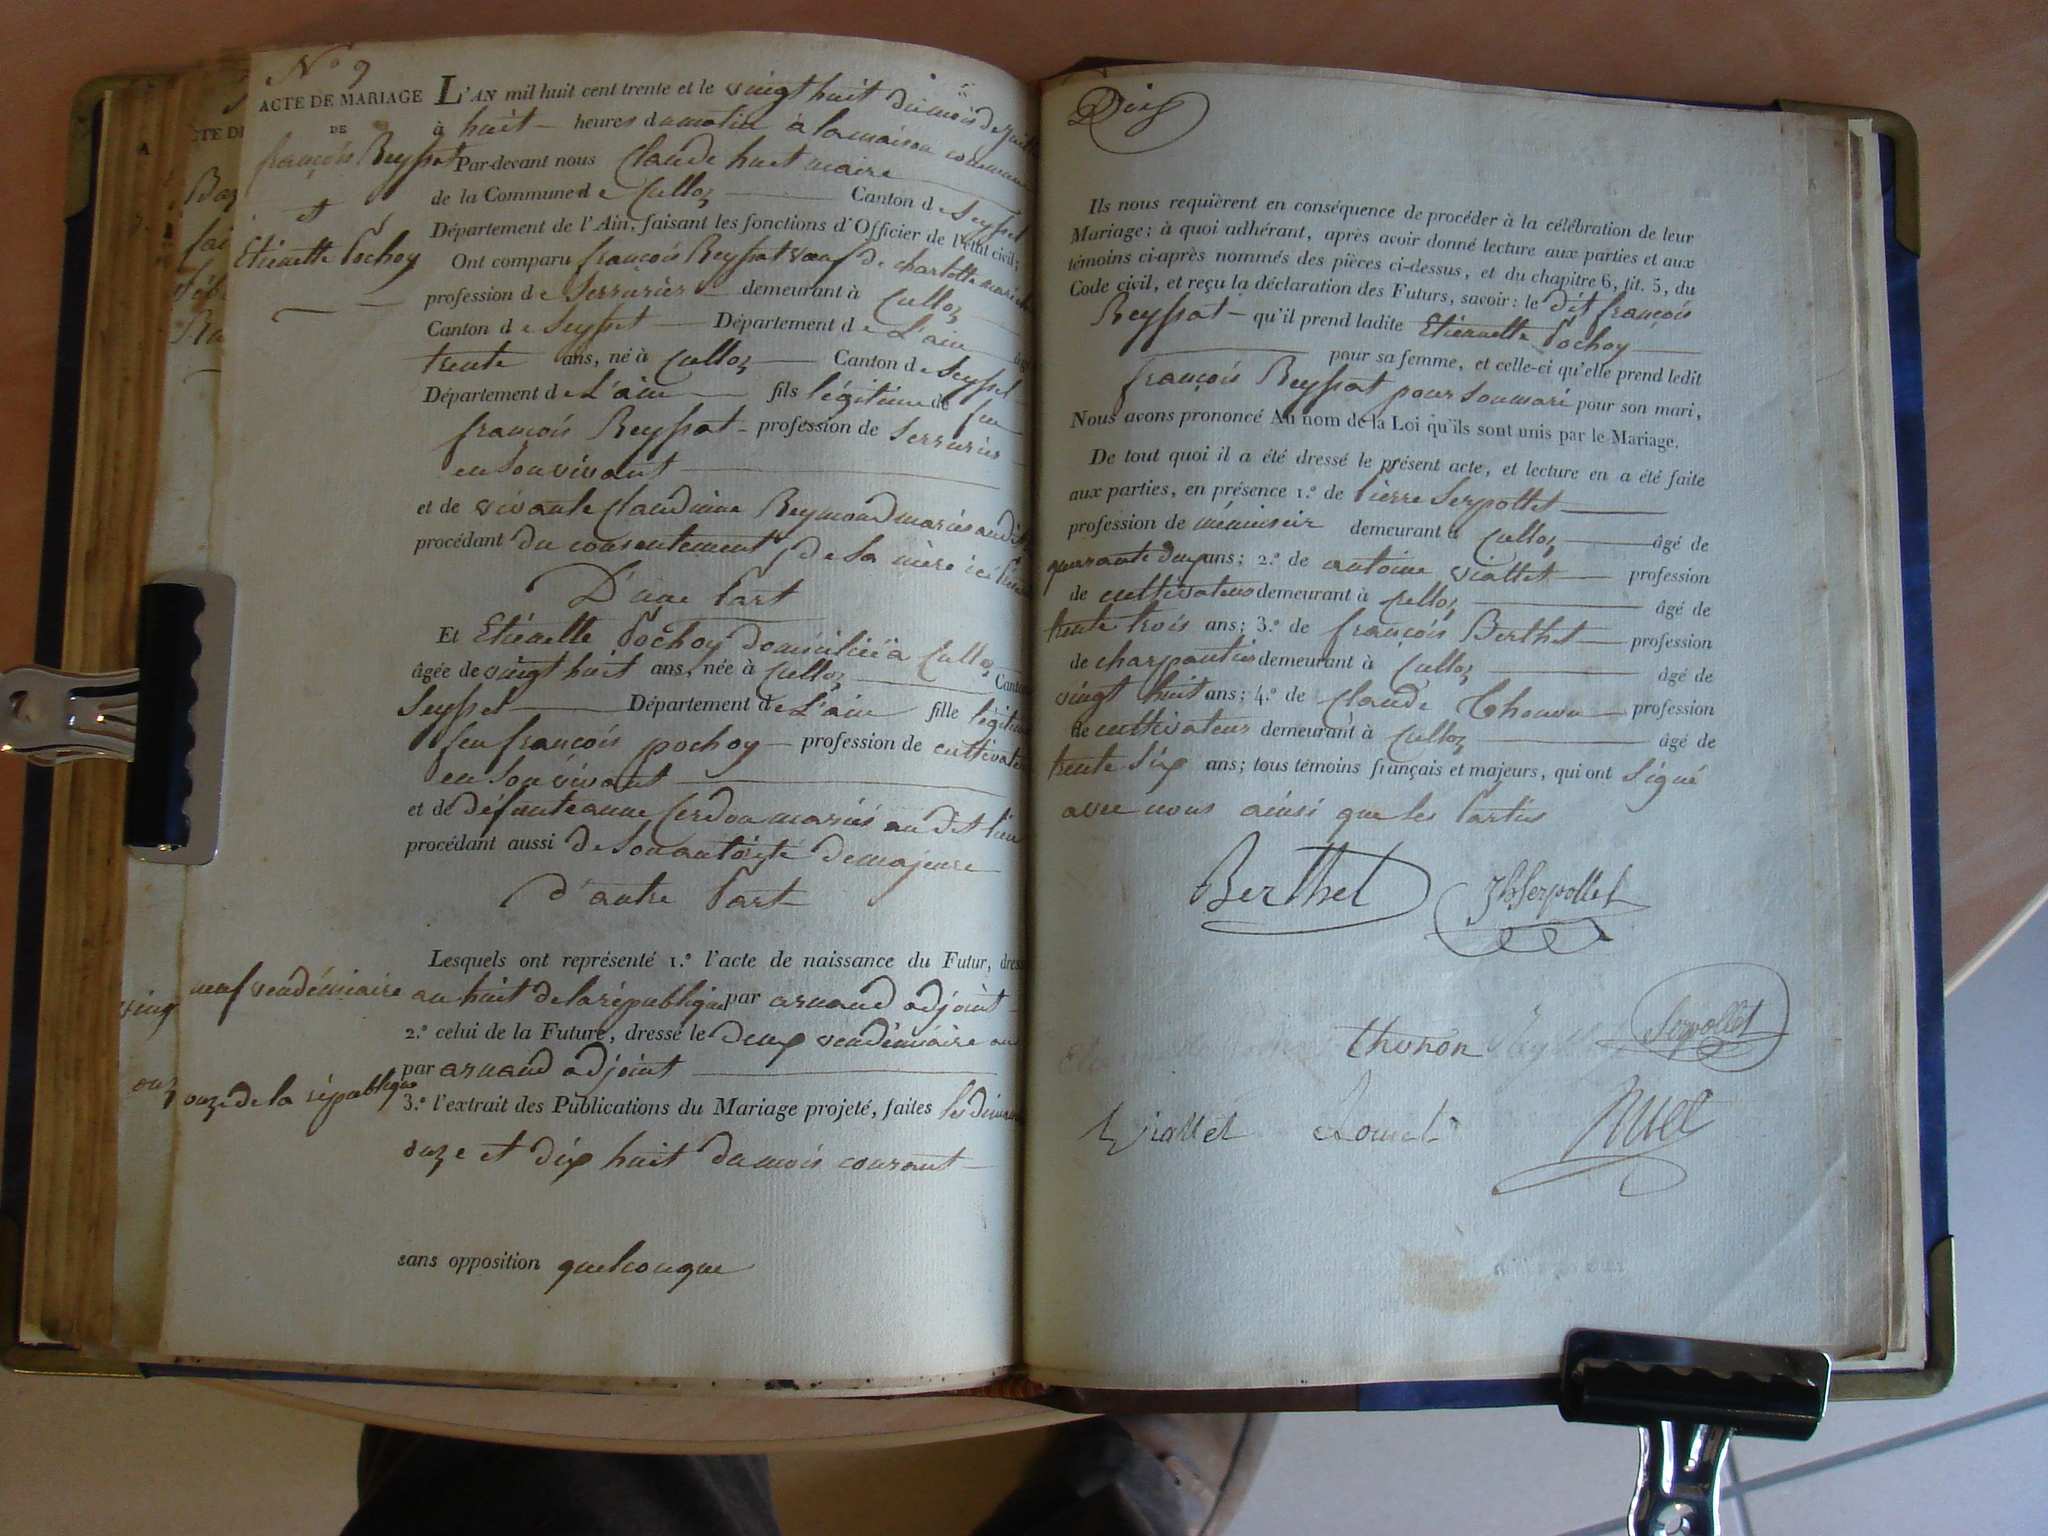 N° 9
ACTE DE MARIAGE
DE
françois Reyssat
et
Etiennette Pochoy
L'AN mil huit cent trente et le vingt huit du mois de juillet
à huit heures du matin à la maison commune
Par-devant nous Claude huet maire
de la Commune de Culloz Canton de Seyssel
Département de l'Ain, faisant les fonctions d'Officier de l'état civil;
Ont comparu françois Reyssat veuf de charlotte
profession de Serrurier demeurant à Culloz
Canton de Seyssel Département de L'ain
trente ans, né à Culloz Canton de Seyssel
Département de L'ain fils légitime de feu
françois Reyssat profession de Serrurier
en son vivant
et de vivante Claudine Reymond mariés au dit
procédant du consentement de sa mère ici
D'une Part
Et Etiennette Pochoy domiciliée à Culloz
âgée de vingt huit ans, née à Culloz Canton
Seyssel Département de L'ain fille légitime
feu françois pochoy profession de cultivateur
en son vivant
et de défunte anne Cerdon mariés au dit lieu
procédant aussi de son autorité de majeure
d'autre Part
Lesquels ont représenté 1.° l'acte de naissance du Futur, dressé
neuf vendémiaire an huit de la république par arnaud adjoint
2.° celui de la Future, dressé le deux vendémiaire an
onze de la république par arnaud adjoint
3.° l'extrait des Publications du Mariage projeté, faites les dimanches
onze et dix huit du mois courant
sans opposition quelconque
Dix
Ils nous requièrent en conséquence de procéder à la célébration de leur
Mariage; à quoi adhérant, après avoir donné lecture aux parties et aux
témoins ci-après nommés des pièces ci-dessus, et du chapitre 6, tit. 5, du
Code civil, et reçu la déclaration des Futurs, savoir: le dit françois
Reyssat qu'il prend ladite Etiennette Pochoy
pour sa femme, et celle-ci qu'elle prend ledit
françois Reyssat pour son mari pour son mari,
Nous avons prononcé Au nom de la Loi qu'ils sont unis par le Mariage.
De tout quoi il a été dressé le présent acte, et lecture en a été faite
aux parties, en présence 1.° de Pierre Serpollet
profession de ménuisier demeurant à Culloz âgé de
quarante deux ans; 2.° de antoine viallet profession
de cultivateur demeurant à Culloz âgé de
trente trois ans; 3.° de françois Berthet profession
de charpentier demeurant à Culloz âgé de
vingt huit ans; 4.° de Claude Thonon profession
de cultivateur demeurant à Culloz âgé de
trente Six ans; tous témoins français et majeurs, qui ont Signé
avec nous ainsi que les Parties
Berthet Jh Serpollet
thonon Serpollet
Viallet
Huet